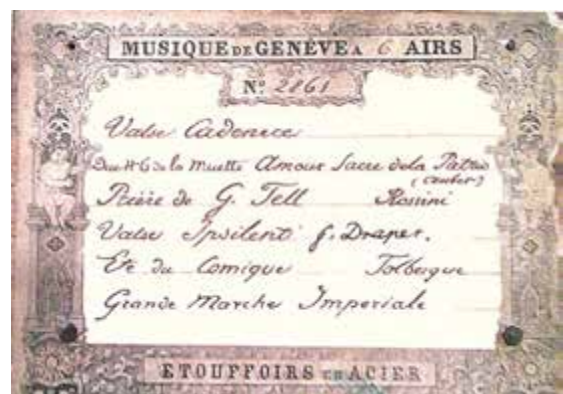 MUSIQUE DE GENÉVE A 6 AIRS
Nº 2861
Valse Cadence
Duo Nº 6 de la Muette Amour Sacre de la Patrie
(Auber)
Prière de G. Tell Rossini
Valse Ipsilenti f. Draper.
Eté du Comique Tolbeque
Grande Marche Imperiale
ETOUFFOIRS EN ACIER